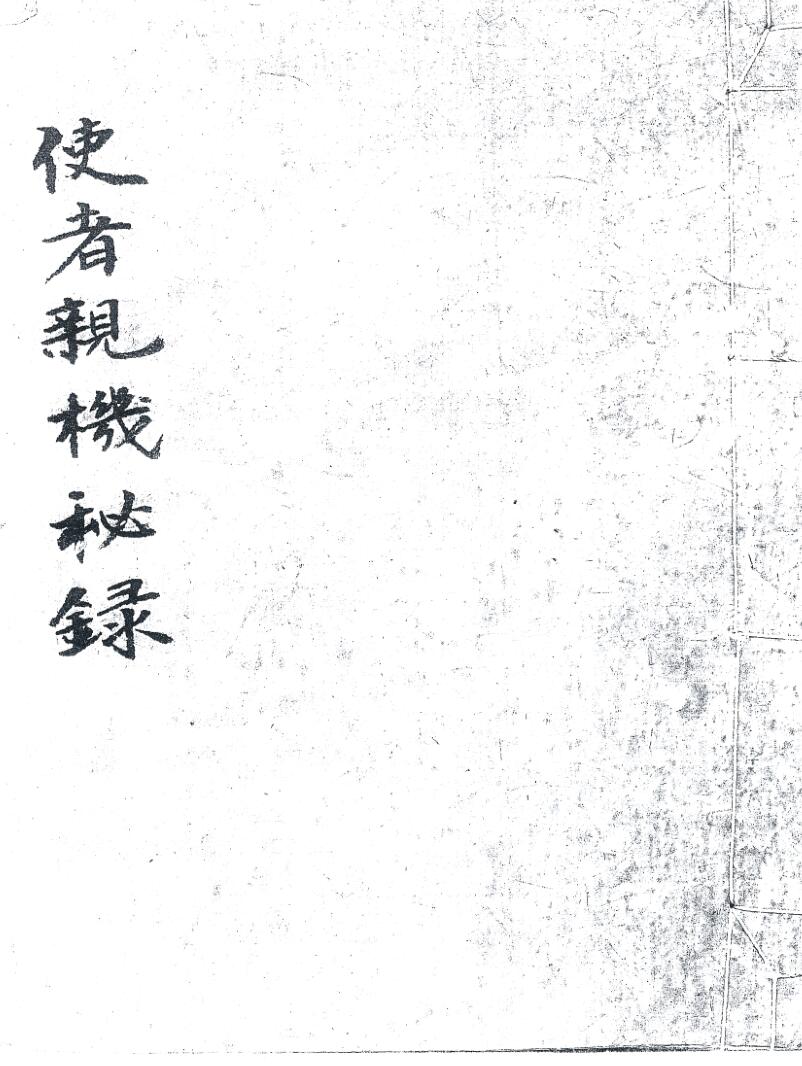 使者親機秘録